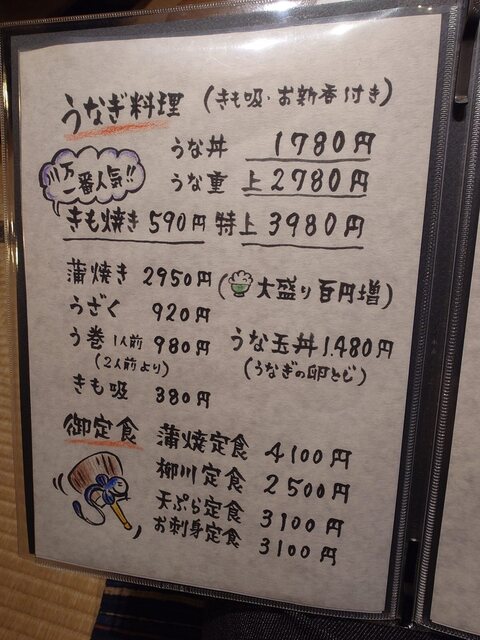 うなぎ料理 (きも吸・お新香付き)
うな丼 1780円
一番人気!!
うな重 上2780円
きも焼き 590円 特上3980円
蒲焼き 2950円 (大盛り百円増)
うざく 920円
う巻 1人前 980円 うな玉丼 1.480円
(2人前より) (うなぎの卵とじ)
きも吸 380円
御定食 蒲焼定食 4100円
柳川定食 2500円
天ぷら定食 3100円
お刺身定食 3100円